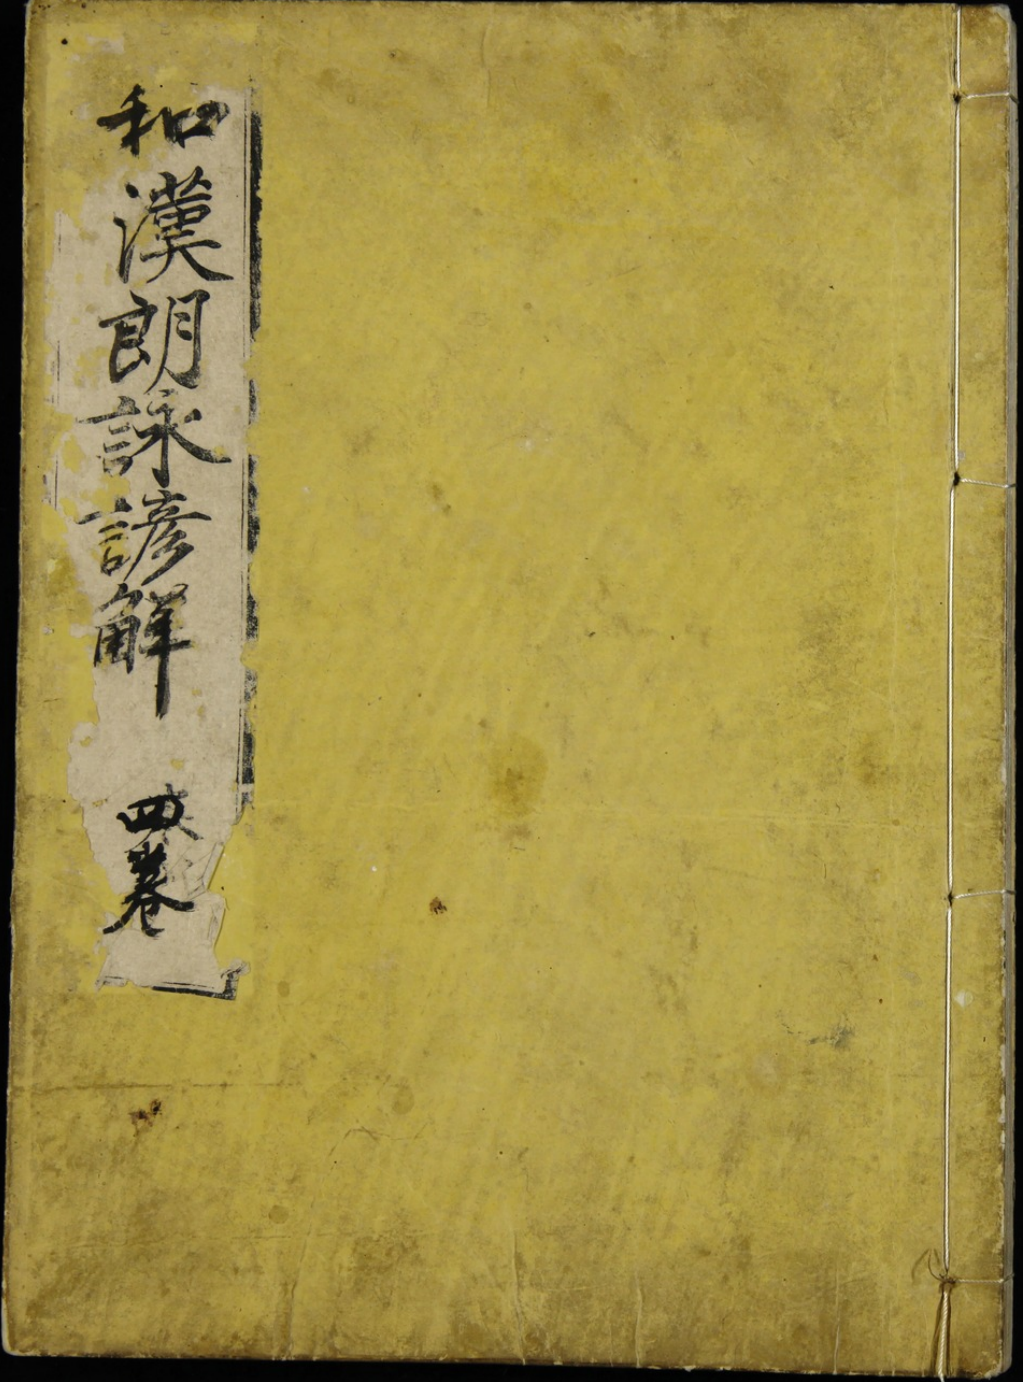 和漢朗詠諺解
四巻